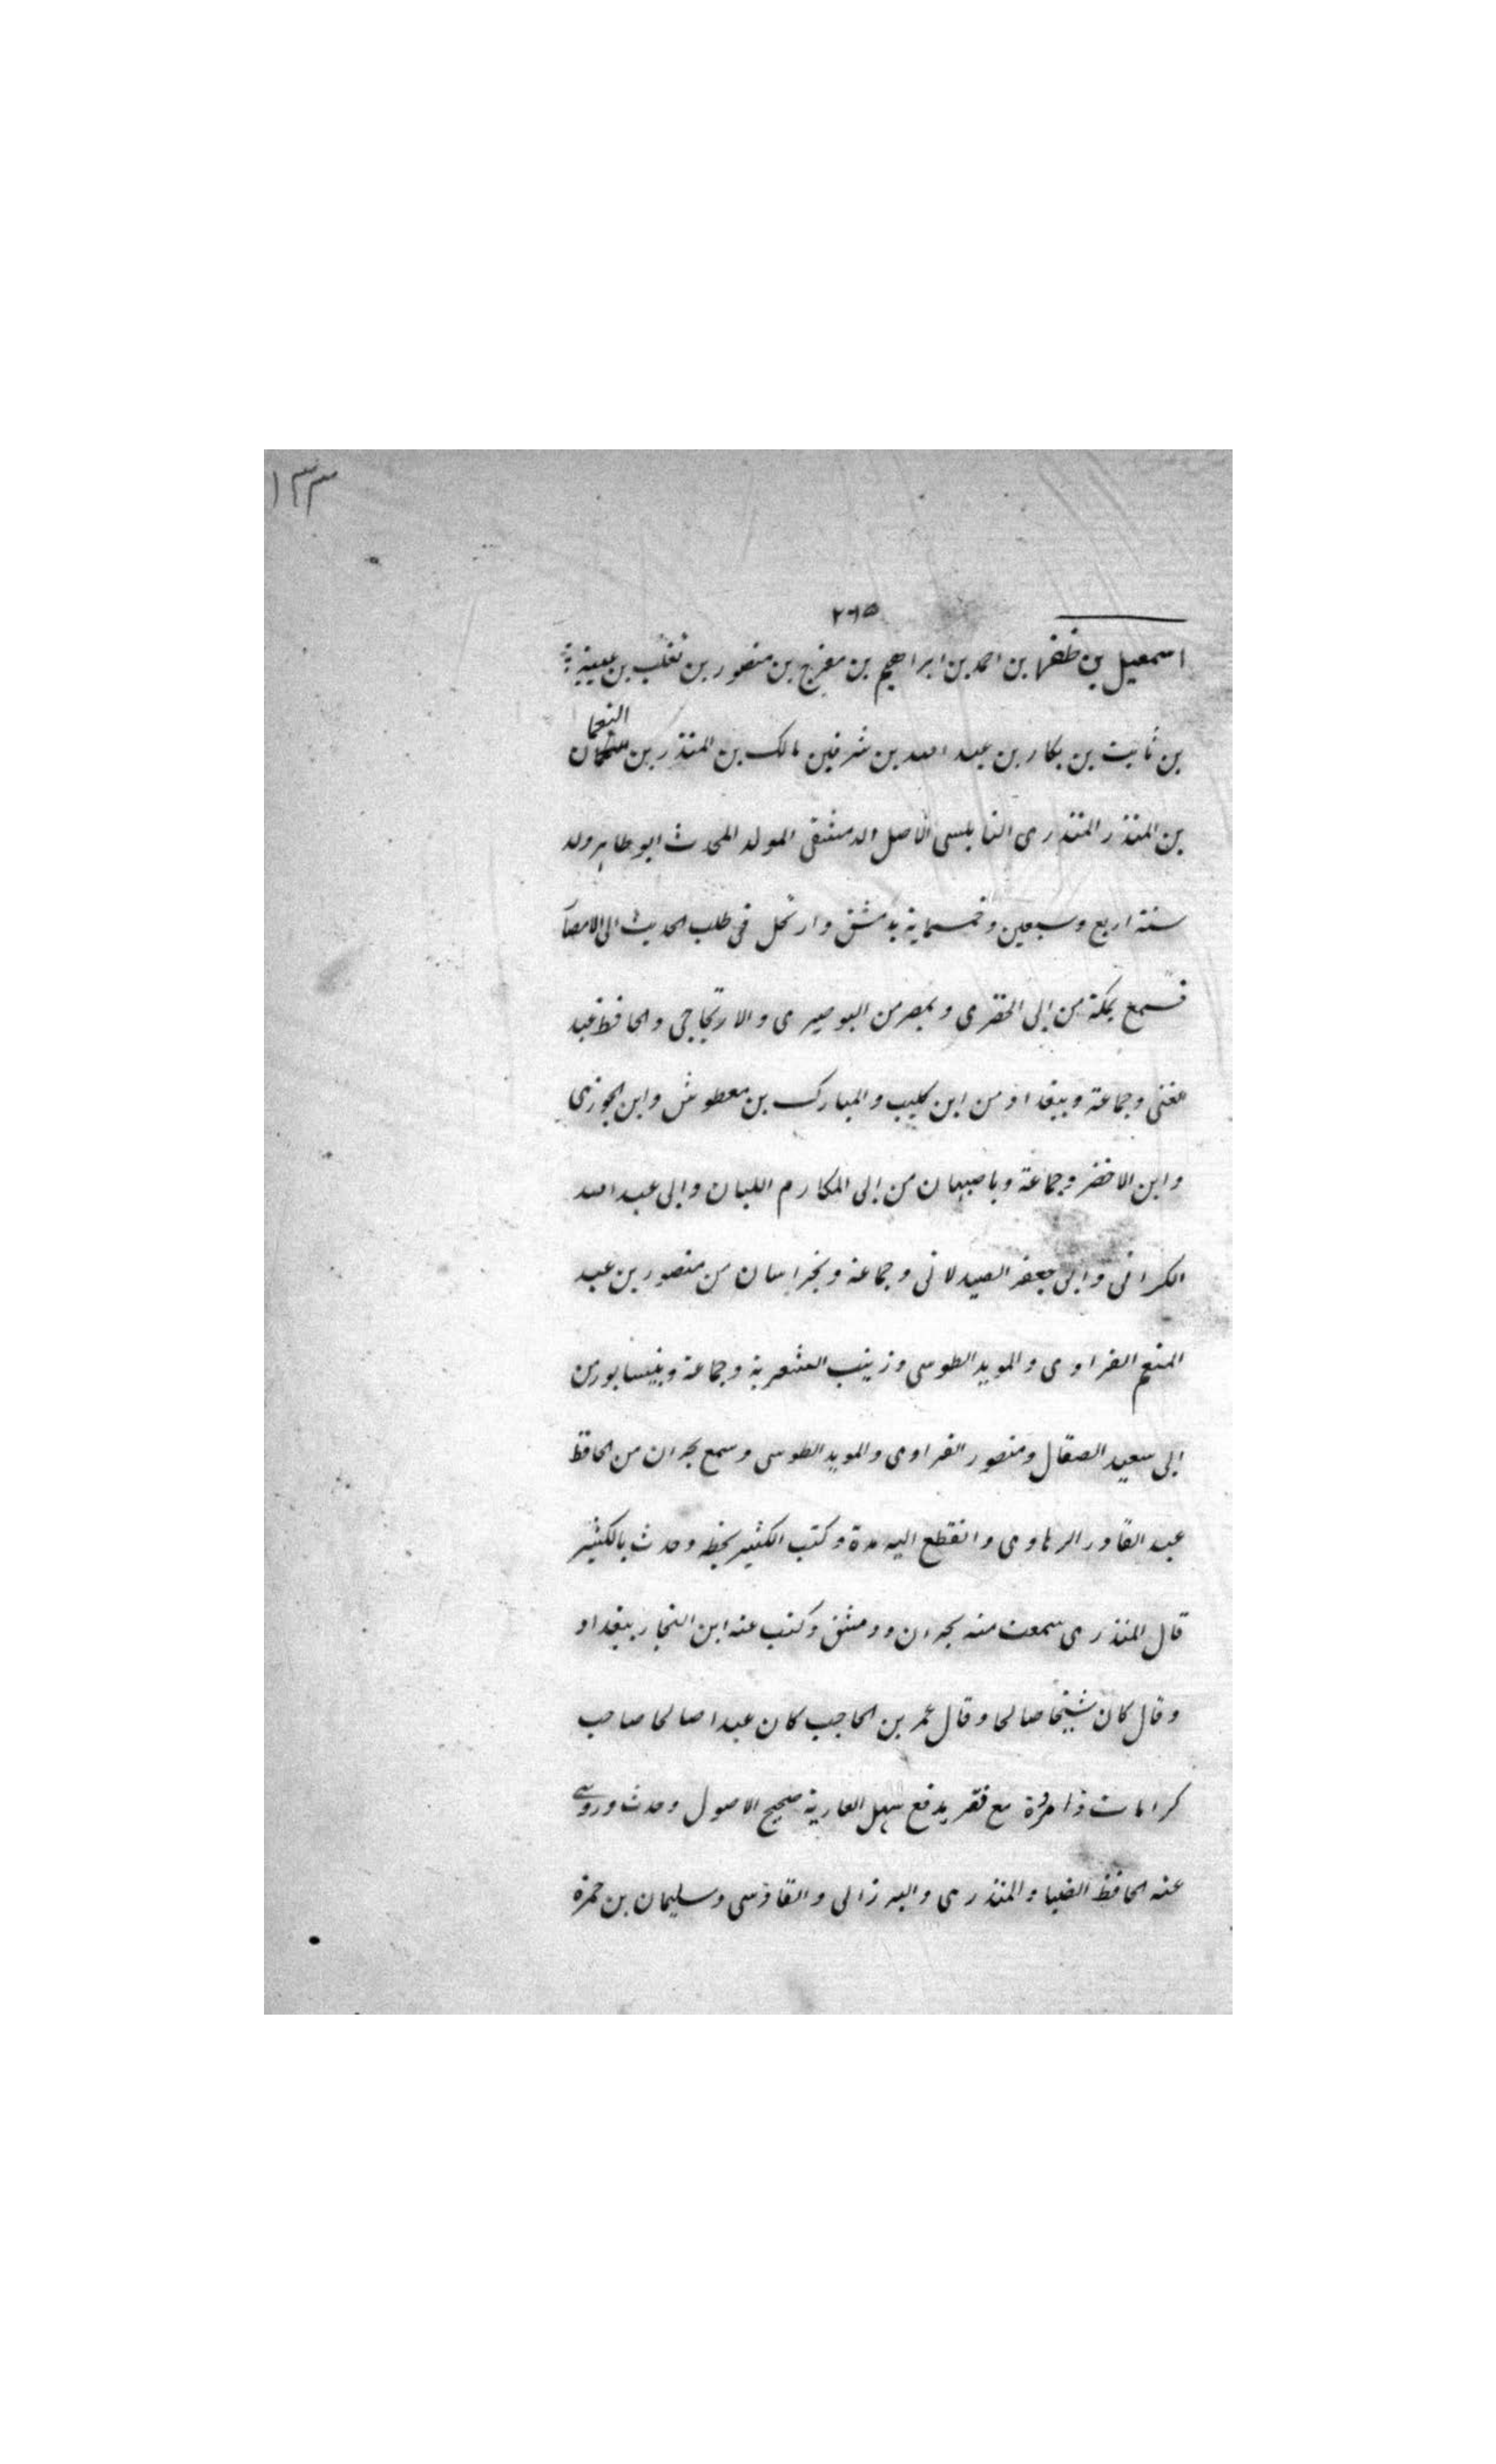 ١٣٣
٢٦٥
اسمعيل بن ظفر بن احمد بن ابراهيم بن مفرج بن منصور بن ثعلب بن عيينة
النعما
بن ثابت بن بكار بن عبد الله بن شرف بن مالك بن المنذر بن
بن المنذر المنذرى النابلسى الاصل الدمشقى المولد المحدث ابو طاهر ولد
سنة اربع وسبعين وخمسماية بدمشق وارتحل فى طلب الحديث الى الامصا
فسمع بمكة من ابى الحضرى وبمصر من البوصيرى والارتاجى والحافظ عبد
لغنى وجماعة وببغداد من ابن كليب والمبارك بن معطوش وابن الجوزى
وابن الاخضر وجماعة وباصبهان من ابى المكارم اللبان وابى عبد الله
الكرانى وابى جعفر الصيدلانى وجماعة وبخراسان من منصور بن عبد
المنعم الفراوى والمويد الطوسى وزينب الشعرية وجماعة وبنيسابور من
ابى سعيد الصقال ومنصور الفراوى والمويد الطوسى وسمع بحران من الحافظ
عبد القادر الرهاوى وانقطع اليه مدة وكتب الكثير بخطه وحدث بالكثير
قال المنذرى سمعت منه بحران ودمشق وكتب عنه ابن النجار ببغداد
وقال كان شيخا صالحا وقال عمر بن الحاجب كان عبدا صالحا صاحب
كرامات ذا مروة مع فقر يدفع سهل العارية صحيح الاصول وحدث وروى
عنه الحافظ الضيا والمنذرى والبرزالى والقادسى وسليمان بن حمزة